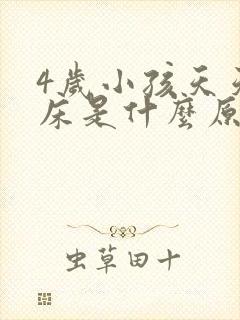 4歲小孩天天
床是什麼原
虫草田十